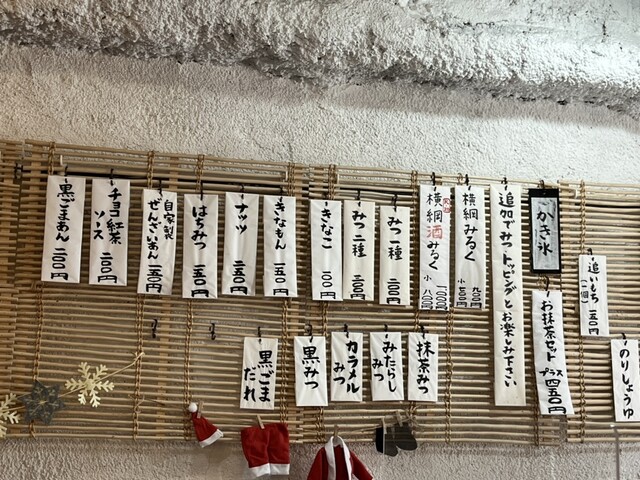 かき氷
お抹茶セット
プラス 四五〇円
追いもち 五〇円
(一個)
のりしょうゆ
追加でみつ、トッピングとお楽しみ下さい
横綱みるく
九〇〇円
横綱酒みるく
小 八〇〇円
みつ一種
みつ二種
きなこ 一〇〇円
きなもん 一五〇円
ナッツ 一五〇円
はちみつ 一五〇円
自家製
ぜんざいあん 一五〇円
チョコ紅茶
ソース 二〇〇円
黒ごまあん 二〇〇円
抹茶みつ
みたらし
みつ
カラメル
みつ
黒みつ
黒ごま
だれ